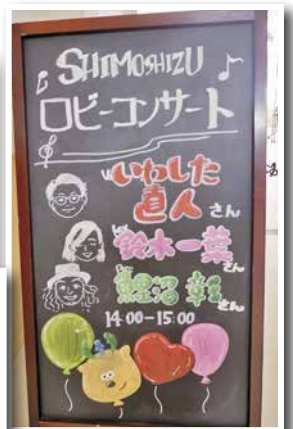 SHIMOSHIZU
ロビーコンサート
Vo.
いわした
直人 さん
鈴木一葉
さん
鯉沼
さん
14:00-15:00